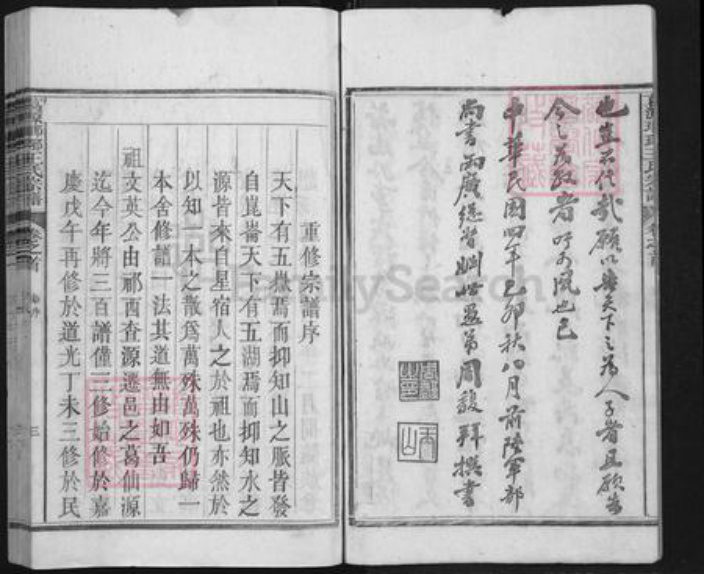 也豈不偉哉願以告天下之為人子者且願告
今之為政者所可風也已
中華民國四年乙卯秋八月前陸軍部
尚書兩廣總督姻世愚弟周馥拜撰書
重修宗譜序
天下有五嶽焉而抑知山之脈皆發
自崑崙天下有五湖焉而抑知水之
源皆來自星宿人之於祖也亦然於
以知一本之散爲萬殊萬殊仍歸一
本舍修譜一法其道無由如吾
祖文英公由祁西查源遷邑之葛仙源
迄今年將三百譜僅三修始修於嘉
慶戊午再修於道光丁未三修於民
三
FamilySearch